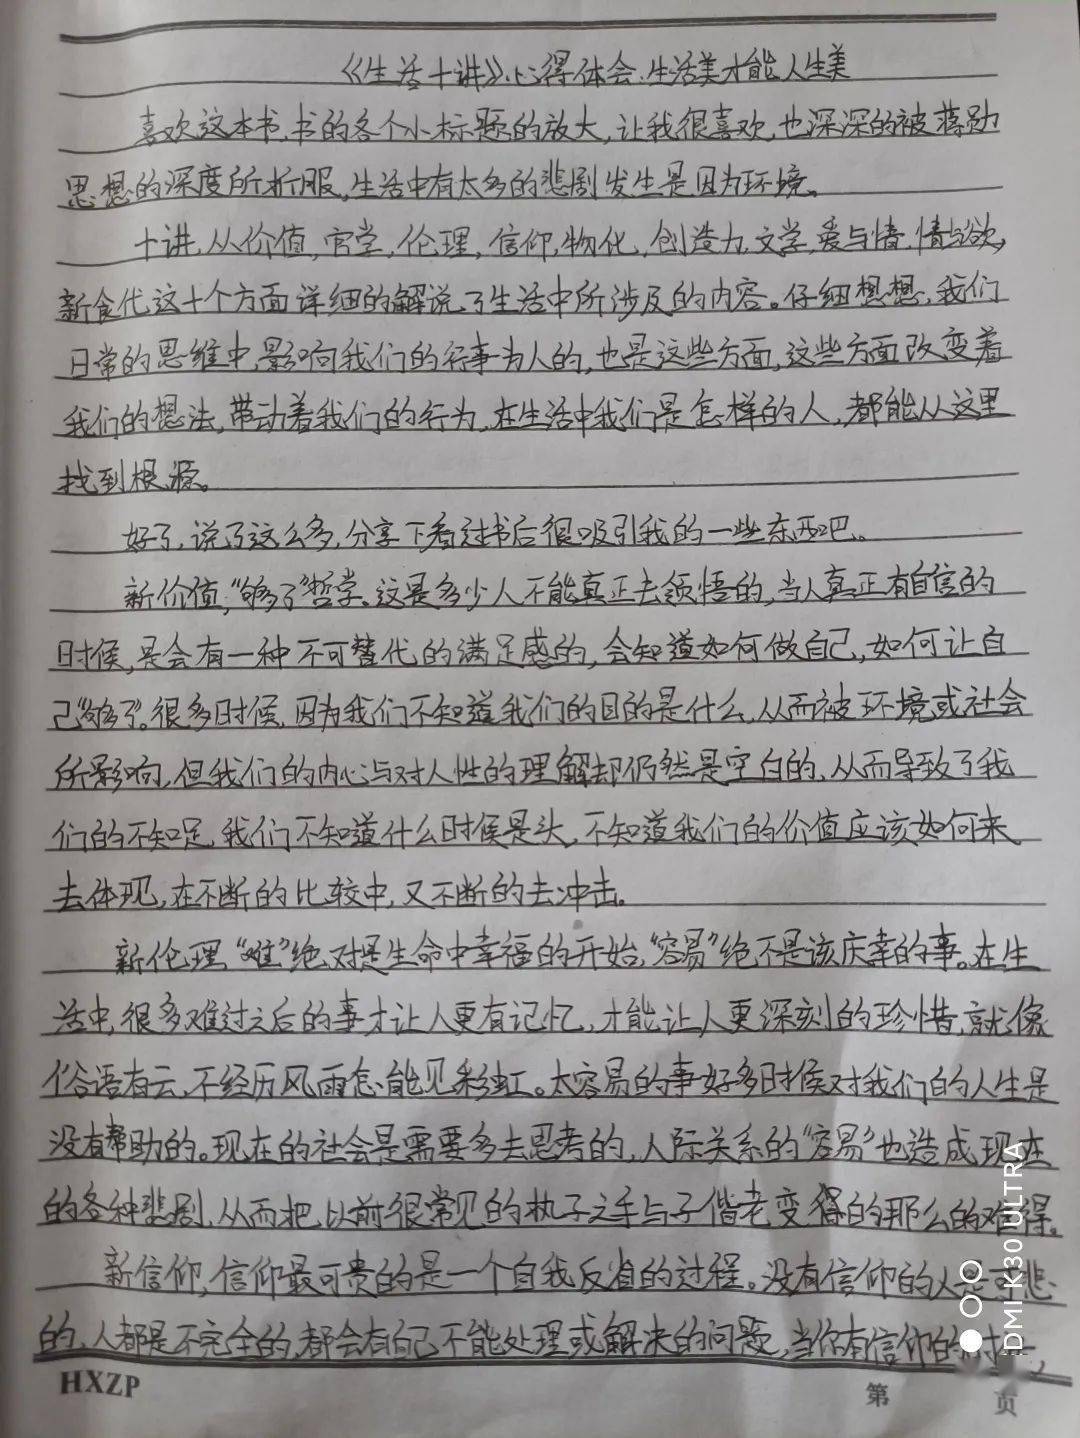 《生活十讲》心得体会:生活美才能人生美
喜欢这本书,书的各个小标题的放大,让我很喜欢,也深深的被蒋勋
思想的深度所折服,生活中有太多的悲剧发生是因为环境。
十讲,从价值,官学,伦理,信仰,物化,创造力,文学,爱与情,情与欲,
新食代这十个方面详细的解说了生活中所涉及的内容。仔细想想,我们
日常的思维中,影响我们的行事为人的,也是这些方面,这些方面改变着
我们的想法,带动着我们的行为,在生活中我们是怎样的人,都能从这里
找到根源。
好了,说了这么多,分享下看过书后很吸引我的一些东西吧。
新价值,“够了”哲学。这是多少人不能真正去领悟的,当人真正有自信的
时候,是会有一种不可替代的满足感的,会知道如何做自己,如何让自
己“够了”。很多时候,因为我们不知道我们的目的是什么,从而被环境或社会
所影响,但我们的内心与对人性的理解却仍然是空白的,从而导致了我
们的不知足,我们不知道什么时候是头,不知道我们的价值应该如何来
去体现,在不断的比较中,又不断的去冲击。
新伦理“难”绝对是生命中幸福的开始,“容易”绝不是该庆幸的事。在生
活中,很多难过之后的事才让人更有记忆,才能让人更深刻的珍惜,就像
俗语有云,不经历风雨怎能见彩虹。太容易的事好多时候对我们的人生是
没有帮助的。现在的社会是需要多去思考的,人际关系的“容易”也造成现在
的各种悲剧,从而把以前很常见的执子之手与子偕老变得的那么的难得。
新信仰,信仰最可贵的是一个自我反省的过程。没有信仰的人是可悲
的,人都是不完全的,都会有自己不能处理或解决的问题,当你有信仰的
HXZP
第 页
DMI K30 ULTRA